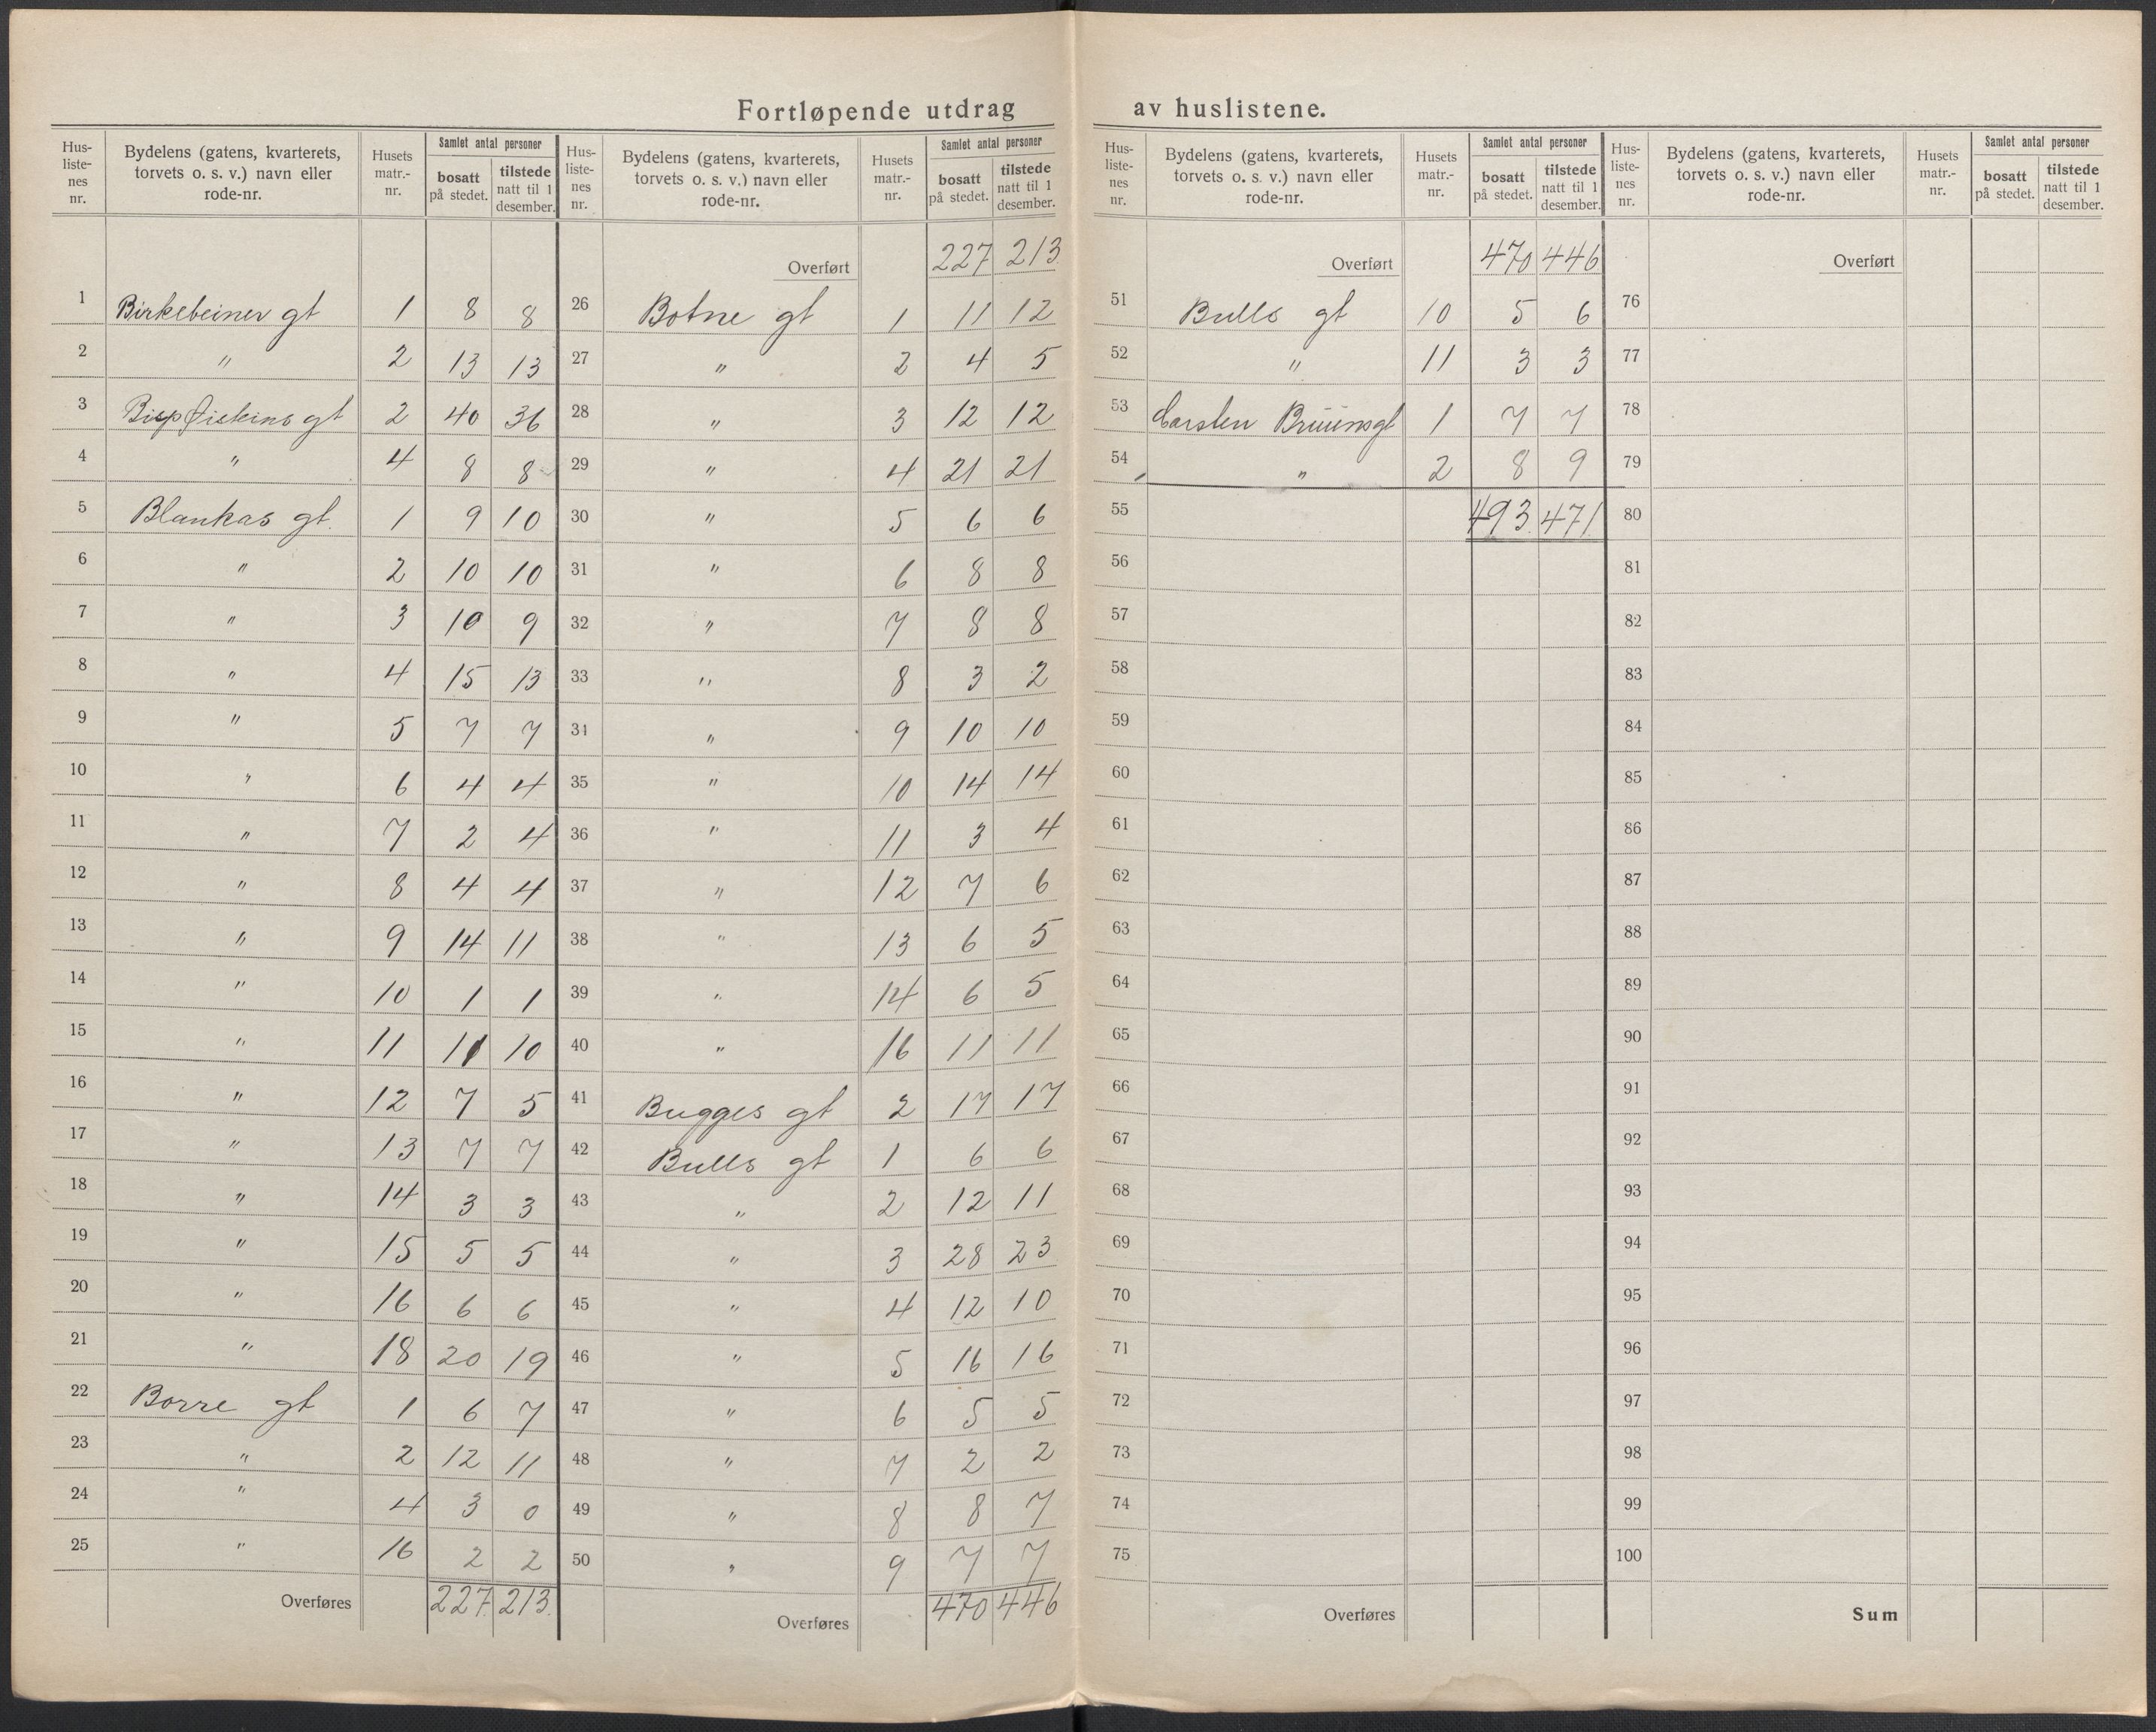 Fortløpende utdrag av huslistene.
Hus-listenes nr. | Bydelens (gatens, kvarterets, torvets o. s. v.) navn eller rode-nr. | Husets matr.-nr. | Samlet antal personer bosatt på stedet. | tilstede natt til 1 desember.
1 Birkebeiner gt 1 8 8
2 " 2 13 13
3 Bisp Øisteins gt 2 40 36
4 " 4 8 8
5 Blankas gt. 1 9 10
6 " 2 10 10
7 " 3 10 9
8 " 4 15 13
9 " 5 7 7
10 " 6 4 4
11 " 7 2 4
12 " 8 4 4
13 " 9 14 11
14 " 10 1 1
15 " 11 11 10
16 " 12 7 5
17 " 13 7 7
18 " 14 3 3
19 " 15 5 5
20 " 16 6 6
21 " 18 20 19
22 Borre gt 1 6 7
23 " 2 12 11
24 " 4 3 0
25 " 16 2 2
Overføres 227 213
Hus-listenes nr. | Bydelens (gatens, kvarterets, torvets o. s. v.) navn eller rode-nr. | Husets matr.-nr. | Samlet antal personer bosatt på stedet. | tilstede natt til 1 desember.
Overført 227 213
26 Botne gt 1 11 12
27 " 2 4 5
28 " 3 12 12
29 " 4 21 21
30 " 5 6 6
31 " 6 8 8
32 " 7 8 8
33 " 8 3 2
34 " 9 10 10
35 " 10 14 14
36 " 11 3 4
37 " 12 7 6
38 " 13 6 5
39 " 14 6 5
40 " 16 11 11
41 Bugges gt 2 17 17
42 Bulls gt 1 6 6
43 " 2 12 11
44 " 3 28 23
45 " 4 12 10
46 " 5 16 16
47 " 6 5 5
48 " 7 2 2
49 " 8 8 7
50 " 9 7 7
Overføres 470 446
Hus-listenes nr. | Bydelens (gatens, kvarterets, torvets o. s. v.) navn eller rode-nr. | Husets matr.-nr. | Samlet antal personer bosatt på stedet. | tilstede natt til 1 desember.
Overført 470 446
51 Bulls gt 10 5 6
52 " 11 3 3
53 Carsten Bruunsgt 1 7 7
54 " 2 8 9
55 493 471
56
57
58
59
60
61
62
63
64
65
66
67
68
69
70
71
72
73
74
75
Overføres
Hus-listenes nr. | Bydelens (gatens, kvarterets, torvets o. s. v.) navn eller rode-nr. | Husets matr.-nr. | Samlet antal personer bosatt på stedet. | tilstede natt til 1 desember.
Overført
76
77
78
79
80
81
82
83
84
85
86
87
88
89
90
91
92
93
94
95
96
97
98
99
100
Sum